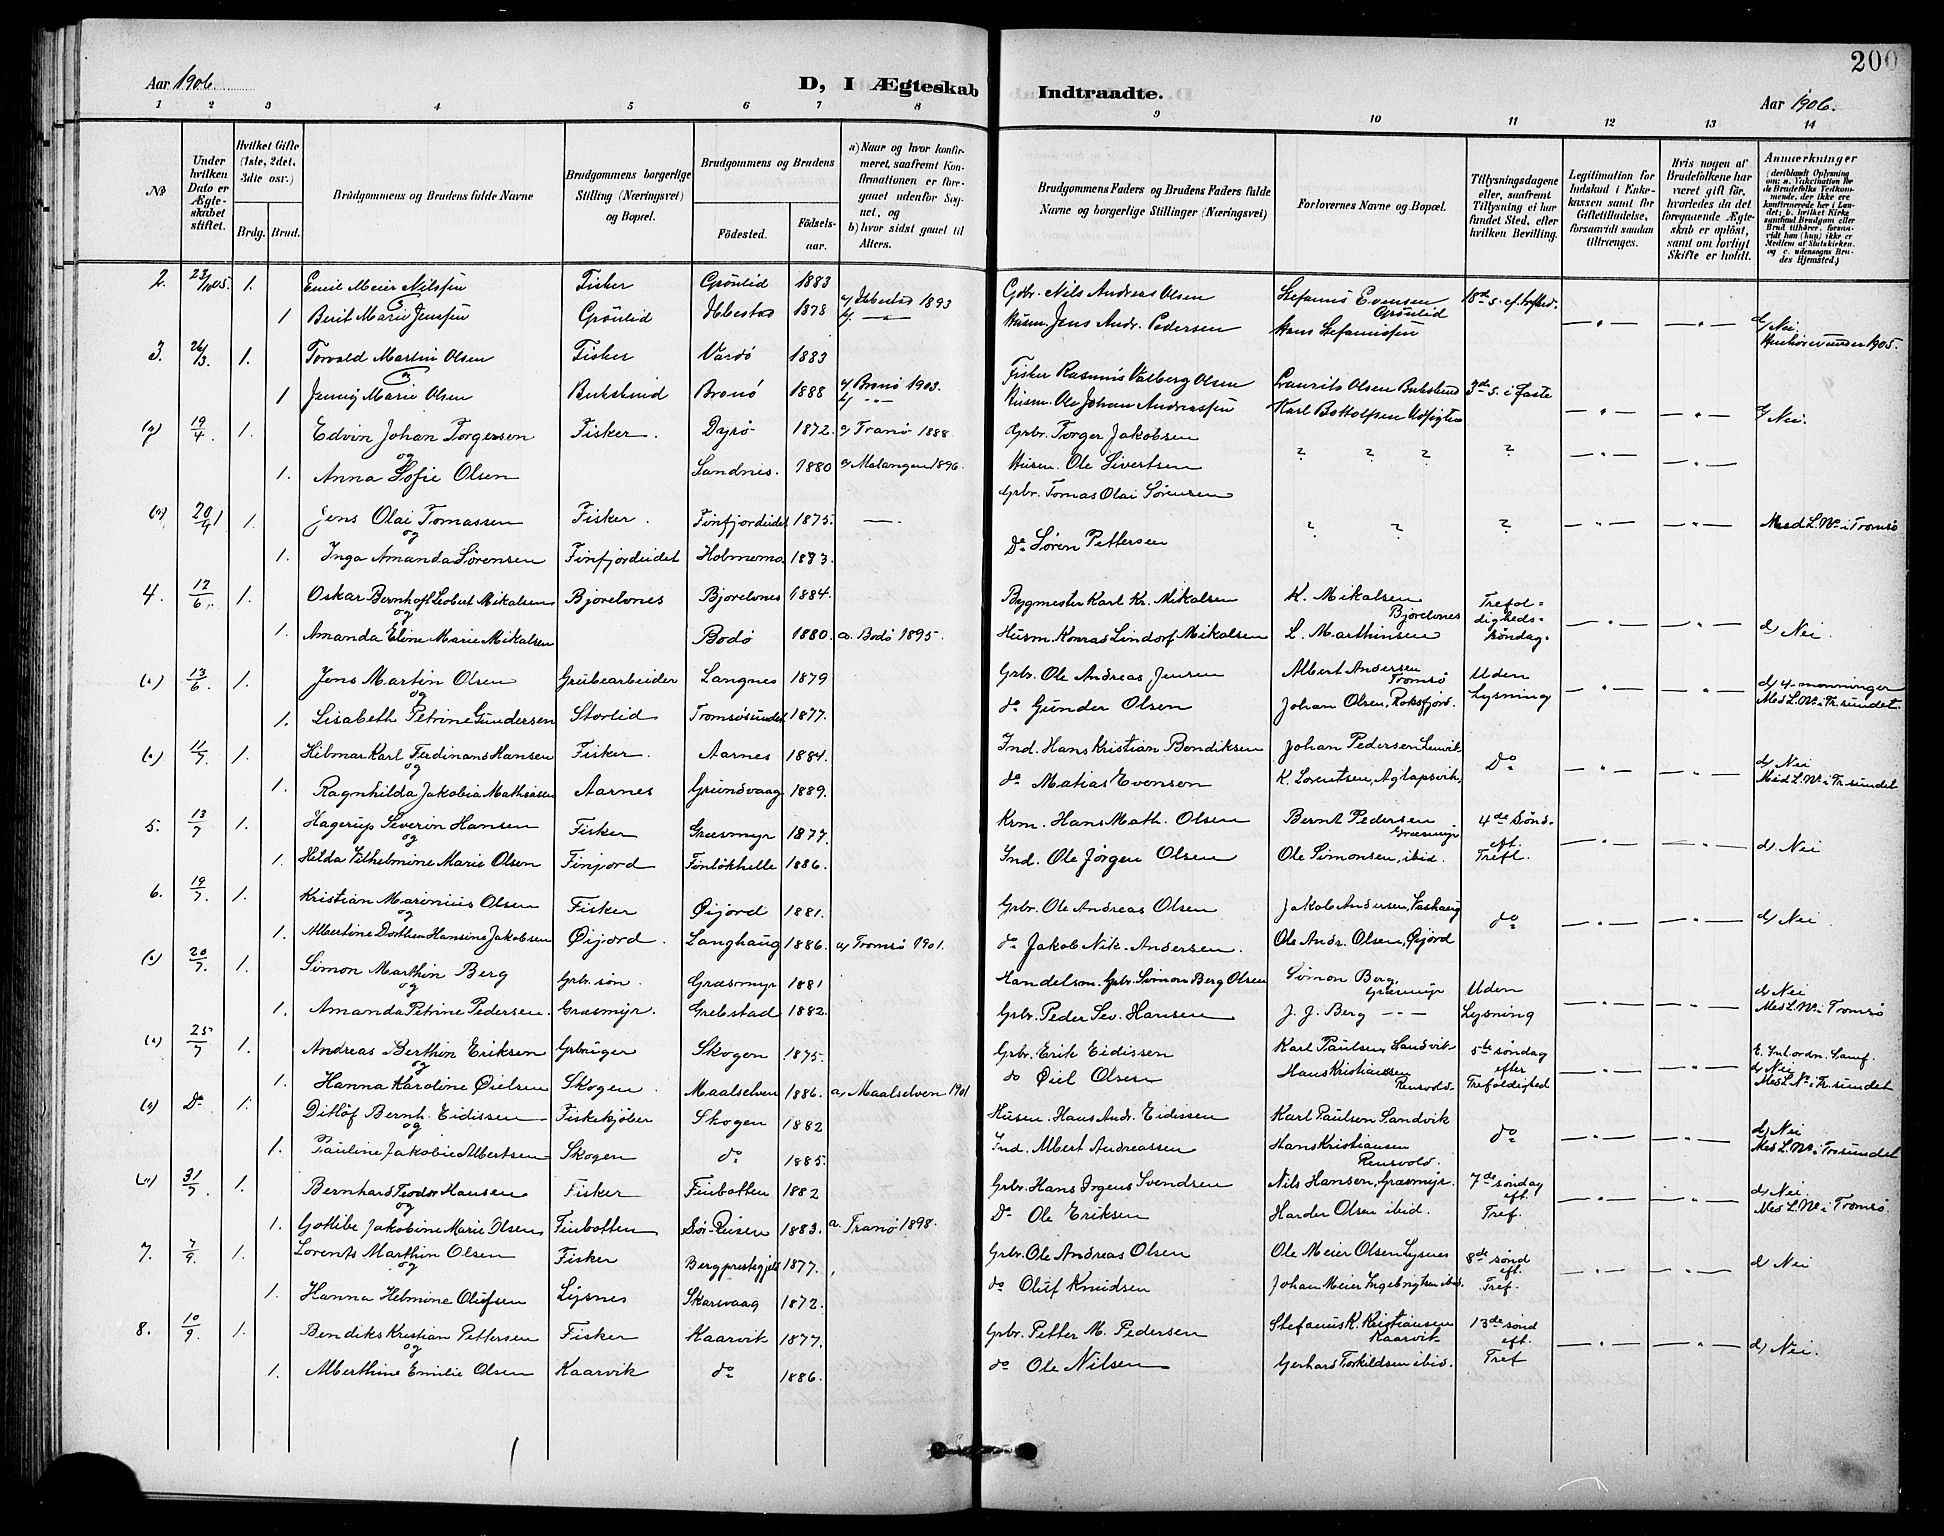 200
Aar 1906.
D, I Ægteskab Indtraadte.
Aar 1906.
1 2 3 4 5 6 7 8 9 10 11 12 13 14
No
Under hvilken Dato er Ægteskabet stiftet.
Hvilket Gifte (1ste, 2det, 3die osv.)
Brdg. Brud.
Brudgommens og Brudens fulde Navne
Brudgommens borgerlige Stilling (Næringsvei) og Bopæl.
Brudgommens og Brudens
Fødested.
Fødselsaar.
a) Naar og hvor konfirmeret, saafremt Konfirmationen er foregaaet udenfor Sognet, og
b) hvor sidst gaaet til Alters.
Brudgommens Faders og Brudens Faders fulde Navne og borgerlige Stillinger (Næringsvei)
Forlovernes Navne og Bopæl.
Tillysningsdagene eller, saafremt Tillysning ei har fundet Sted, efter hvilken Bevilling.
Legitimation for Indskud i Enkekassen samt for Giftetilladelse, forsaavidt saadan tiltrænges.
Hvis nogen af Brudefolkene har været gift før, hvorledes da det foregaaende Ægteskab er opløst, samt om lovligt Skifte er holdt.
Anmærkninger
2. 23/10 05. 1. Emil Meier Nilsen Fisker Grönlid 1883 Gdbr. Nils Andreas Olsen Stefanus Evensen Grönlid
1 Berit Marie Jensen Grönlid Ibestad 1878 a/ Ibestad 1893 Husm. Jens Andr. Pedersen Hans Stefanussen d/ Nei
3. 26/3. 1. Torvald Martin Olsen Fisker Vardö 1883 Fisker Rasmus Valberg Olsen Laurits Olsen Bukskind 3de s. i faste
1 Jenny Marie Olsen Bukskind Bronö 1888 a/ Bronö 1903. Husm. Ole Johan Andreassen Karl Bottolfsen d/ Nei.
(a) 19/4. 1. Edvin Johan Torgersen Fisker. Dyrö 1872. a/ Tranö 1888. Grbr. Torger Jakobsen ? ? ? ?
og
1. Anna Sofie Olsen Sandnes. 1880 a/ Malangen 1896. Husm. Ole Sivertsen
(a) 20/4 1. Jens Olai Tomassen Fisker. Finfjordeidet 1875. Grbr. Tomas Olai Sørensen ? ? ? Med L. No i Tromsö
og
1. Inga Amanda Sörensen Finfjordeidet Holmemo. 1883. Do Søren Pettersen
4. 12/6. 1. Oskar Bernhoft Leobert Mikalsen Bjorelvnes Bjorelvnes 1884. Bygmester Karl Kr. Mikalsen K. Mikalsen Bjorelvnes Trefoldigheds-
og
1. Amanda Eline Marie Mikalsen Bodö 1880. a. Bodö 1895. Husm. Konrad Lindorf Mikalsen L. Marthinsen söndag. d/ Nei.
(a) 13/6. 1. Jens Martin Olsen Grubearbeider Langnes 1879 Grbr. Ole Andreas Jensen Albert Andersen Tromsö Uden d/ 4-menninger
og
1. Lisabeth Petrine Gundersen Storlid Tromsösundet 1877. do Gunder Olsen Johan Olsen, Roksfjord. Lysning Med L. No i Tr.sundet.
(a) 11/7 1. Hilmar Karl Ferdinand Hansen Fisker. Aarnes 1884. Ind. Hans Kristian Bendiksen Johan Pedersen Lenvik Do d/ Nei
og
1. Ragnhilda Jakobia Mathisen Aarnes Grundvaag 1889. do Matias Evensen K. Lorentsen, Aglapsvik. Med L. No i Tr.sundet
5. 13/7 1. Hagerup Severin Hansen Fisker Græsmyr 1877. Krm. Hans Math. Olsen Bernt Pedersen Græsmyr 4de sönd.
og
1. Hilda Vilhelmine Marie Olsen Finjord Finlökhelle 1886. Ind. Ole Jørgen Olsen Ole Simonsen, ibid. eft. Trefl. d/ Nei
6. 19/7. 1. Kristian Marinius Olsen Fisker Øijord 1881. Grbr. Ole Andreas Olsen Jakob Andersen, do d/ Nei
og
1. Albertine Dorthea Hansine Jakobsen Øijord. Langhaug 1886. a/ Tromsö 1901. do Jakob Nik. Andersen. Ole Andr. Olsen, Øijord
(a) 20/7. 1. Simon Marthin Berg Grbr. sön. Græsmyr 1881 Handelsm. Grbr. Simon Berg Olsen Simon Berg, Græsmyr Uden d/ Nei
og
1. Amanda Petrine Pedersen. Græsmyr. Grebstad 1882. Grbr. Peder Sev. Hansen J. J. Berg Lysning Med L. No i Tromsö
(a) 25/7 1. Andreas Berthin Eriksen Grbruger Skogen 1875. Grbr. Erik Eidissen Karl Paulsen Sandvik 5te söndag
og
1. Hanna Karoline Øielsen Skogen. Maalselven 1886. a/ Maalselven 1901 do Øiel Olsen Hans Kristiansen Rensvold. efter Trefoldighed d/ Nei Med L. No i Tr.sundet
(a) Do 1. Ditlöf Bernh. Eidissen Fiskekjöber Skogen 1882 Husm. Hans Andr. Eidissen Karl Paulsen Sandvik do d/ Nei
og
1. Pauline Jakobie Albertsen Skogen do 1885. Ind. Albert Andreassen Hans Kristiansen Rensvold. Med L. No i Tr.sundet
(a) 31/7 1. Bernhard Teodor Hansen Fisker Finbotten 1882 Grbr. Hans Jrgens Svendsen Nils Hansen, Græsmyr. 7de söndag d/ Nei.
og
1. Gotlibe Jakobine Marie Olsen Finbotten Sör-Reisen 1883. a. Tranö 1898. Do Ole Eriksen Harder Olsen ibid. eft. Tref. Med L. No i Tromsö.
7. 7/9. 1. Lorents Marthin Olsen Fisker Berg prestegjeld 1877. Grbr. Ole Andreas Olsen Ole Meier Olsen Lysnes 8de sönd d/ Nei
og
1. Hanna Helmine Olufsen Lysnes Skarsvaag 1872. do Oluf Knudsen Johan Meier Ingebrigtsen ibid. eft. Tref.
8. 10/9. 1. Bendiks Kristian Pettersen Fisker Kaarvik 1877. Grbr. Petter M. Pedersen Stefanus K. Kristiansen Kaarvik 13de sönd
og
1. Alberthine Emilie Olsen Kaarvik do 1886. do Ole Nilsen Gerhard Torkildsen ibid. eft. Tref d/ Nei.